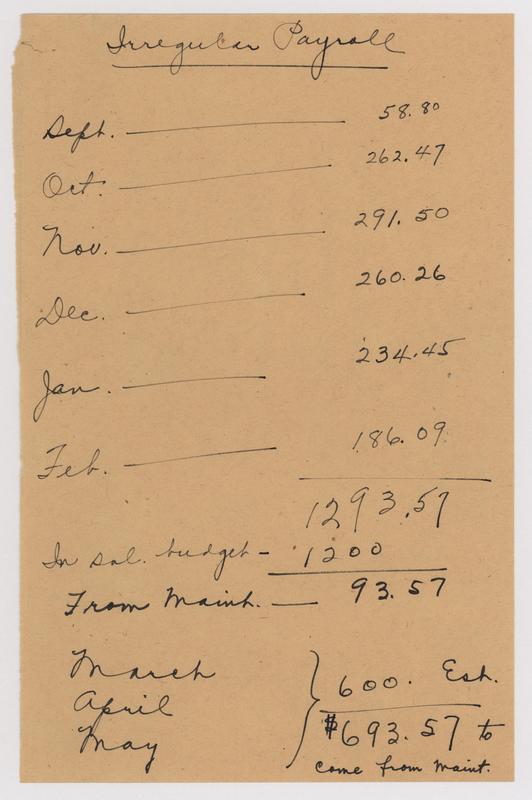 Irregular Payroll
Sept. — 58.80
Oct. — 262.47
Nov. — 291.50
Dec. — 260.26
Jan. — 234.45
Feb. — 186.09
1293.57
In sal. budget – 1200
From Maint. — 93.57
March
April
May
} 600. Est.
$693.57 to
come from maint.